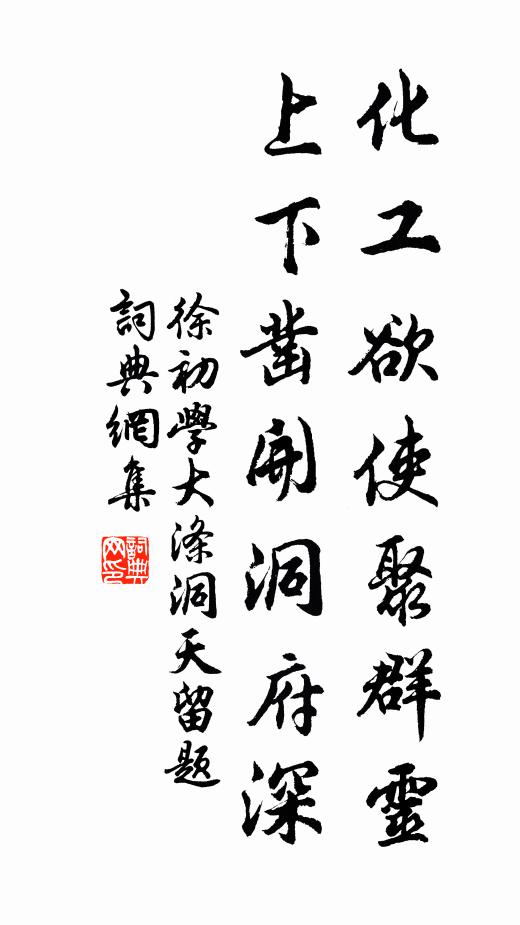 化工欲使聚群靈
上下凿開洞府深
徐初學大滌洞天留題
詞典網集
詞典网印